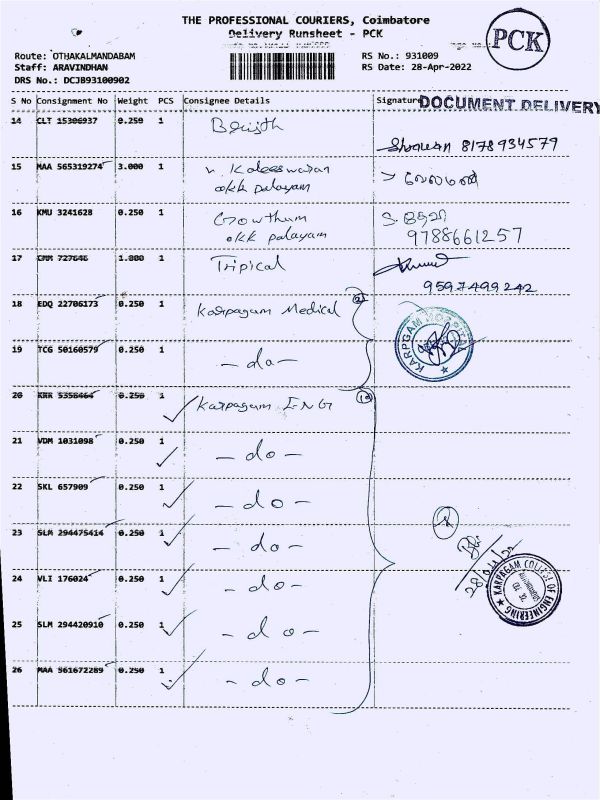 THE PROFESSIONAL COURIERS, Coimbatore
Delivery Runsheet - PCK
PCK
Route: OTHAKALMANDABAM
RS No.: 931009
Staff: ARAVINDHAN
RS Date: 28-Apr-2022
DRS No.: DCJB93100902
S No Consignment No Weight PCS Consignee Details Signature DOCUMENT DELIVERY
14 CLT 15306937 0.250 1
8178934579
15 MAA 565319274 3.000 1 V. Kaleeswaran
okk palayam
16 KMU 3241628 0.250 1 Gowthum
okk palayam
9788661257
17 CMM 727646 1.000 1 Tripical
9597499242
18 EDQ 22706173 0.250 1 Karpagam Medical
KARPGAM HOSPITAL
19 TCG 50160579 0.250 1 - do -
20 KRR 5358464 0.250 1 Karpagam ENG
21 VDM 1031098 0.250 1 - do -
22 SKL 657909 0.250 1 - do -
23 SLM 294475414 0.250 1 - do -
24 VLI 176024 0.250 1 - do -
28/04/22
KARPAGAM COLLEGE OF ENGINEERING
25 SLM 294420910 0.250 1 - do -
26 MAA 561672289 0.250 1 - do -